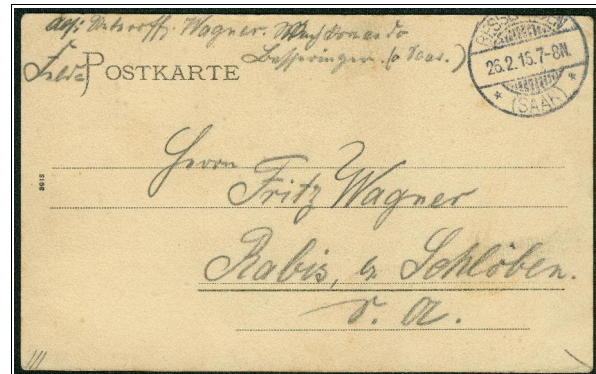 Abs: Unteroff. Wagner. Wachkomando
Besseringen. (a Saar.)
Feld POSTKARTE
BESSERINGEN
26.2.15.7-8N.
* (SAAR) *
Herrn
Fritz Wagner
Rabis, b Schlöben.
S. A.